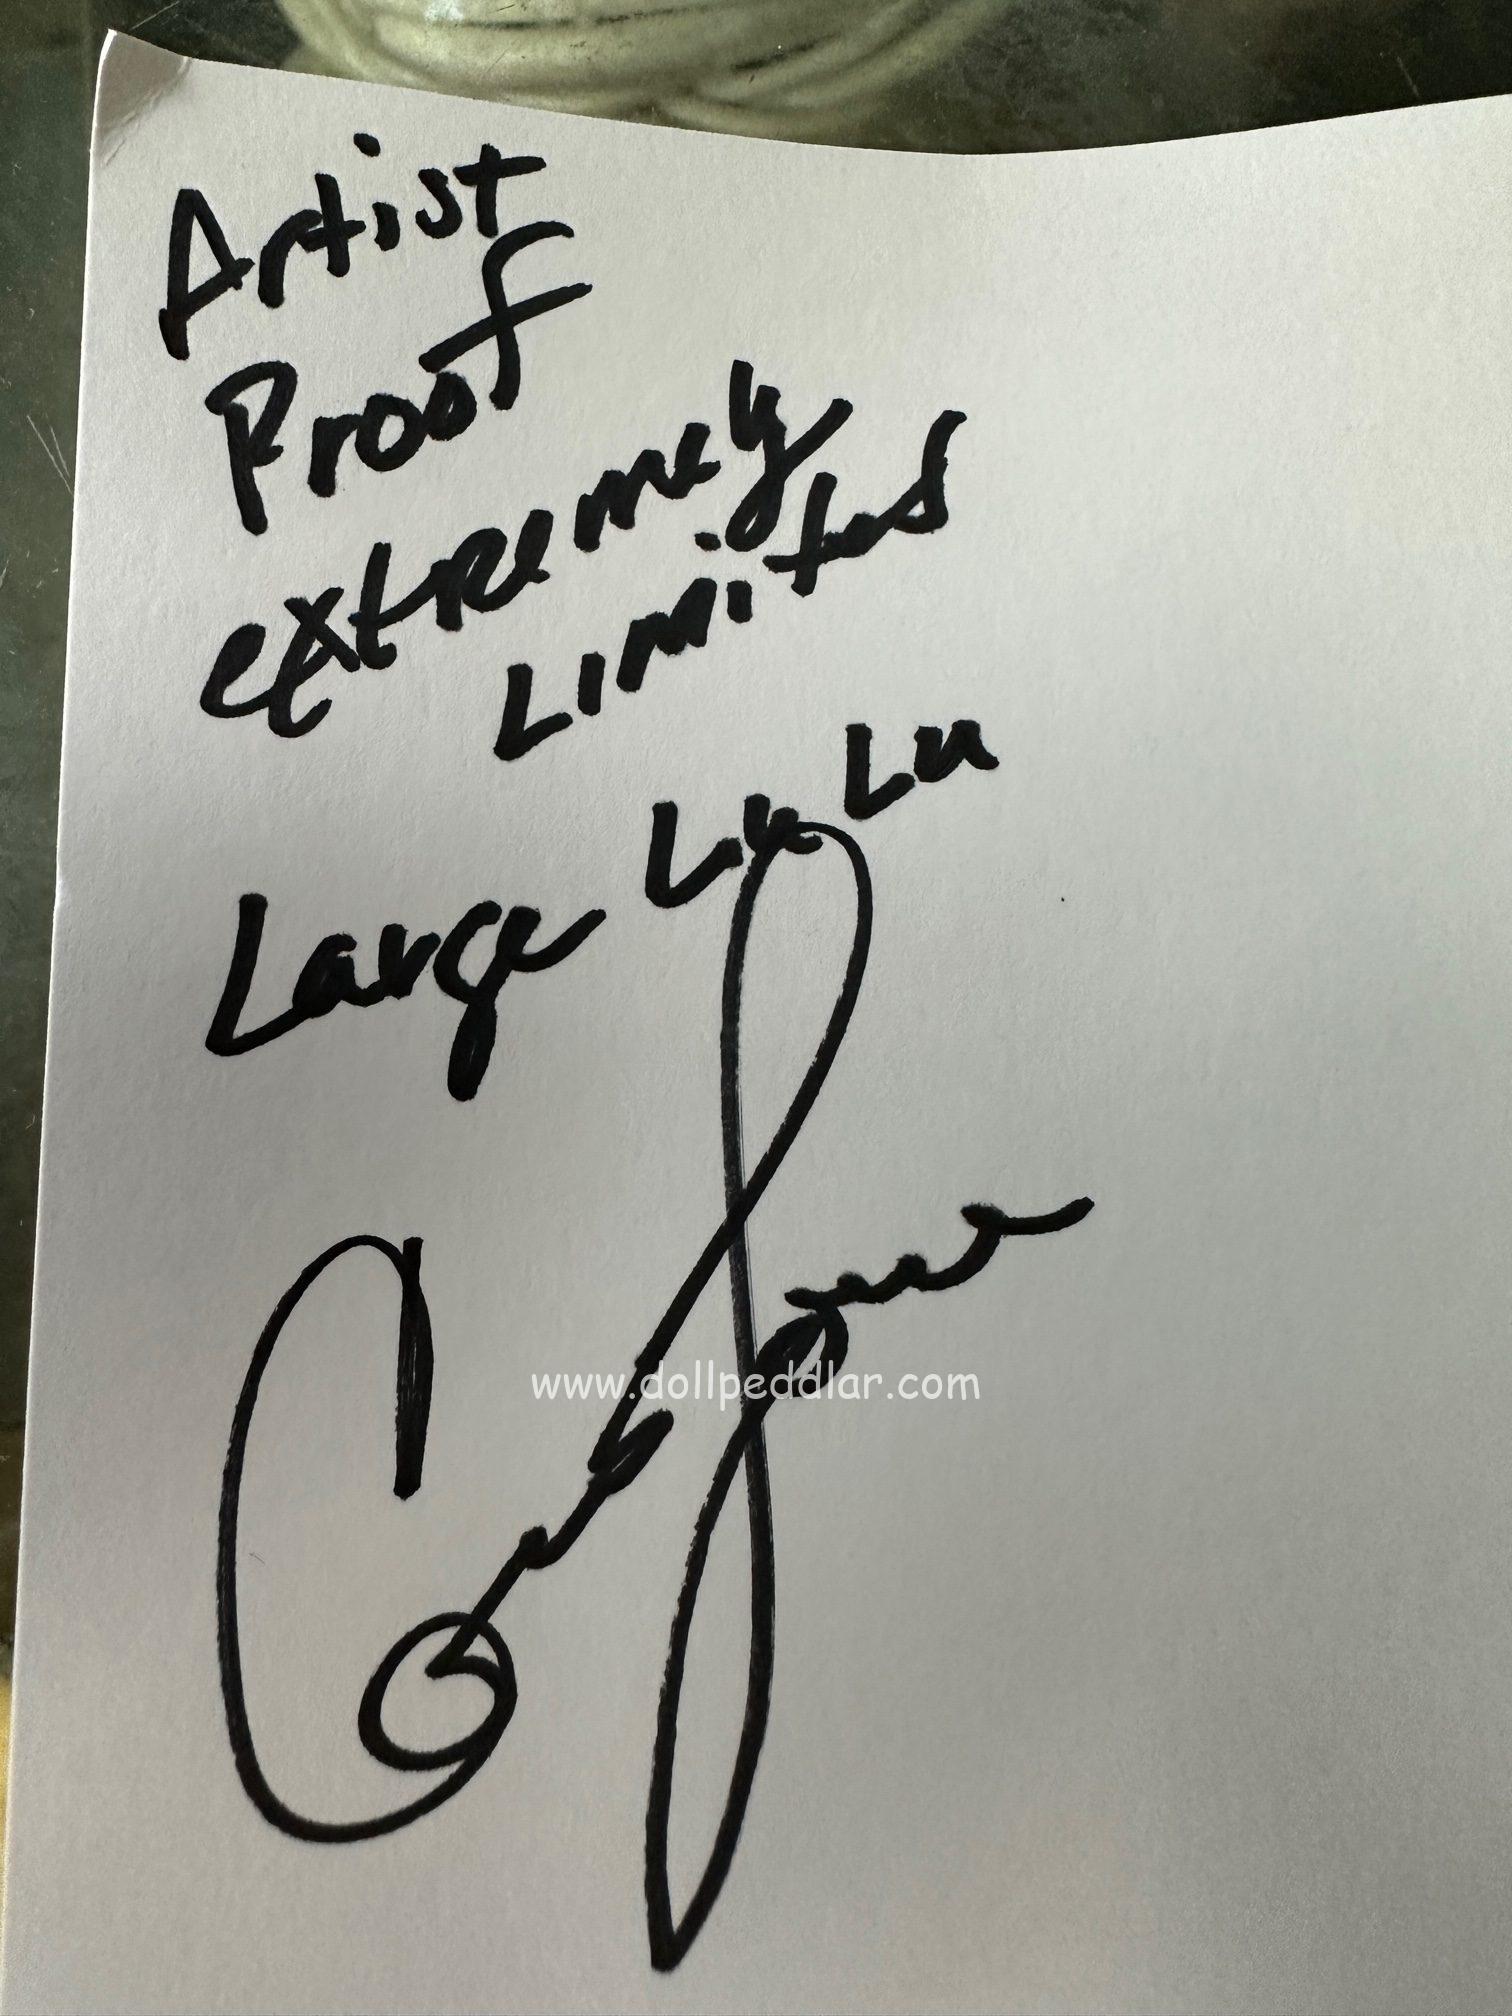 Artist
Proof
extremely
Limited
Large Lu Lu
www.dollpeddlar.com